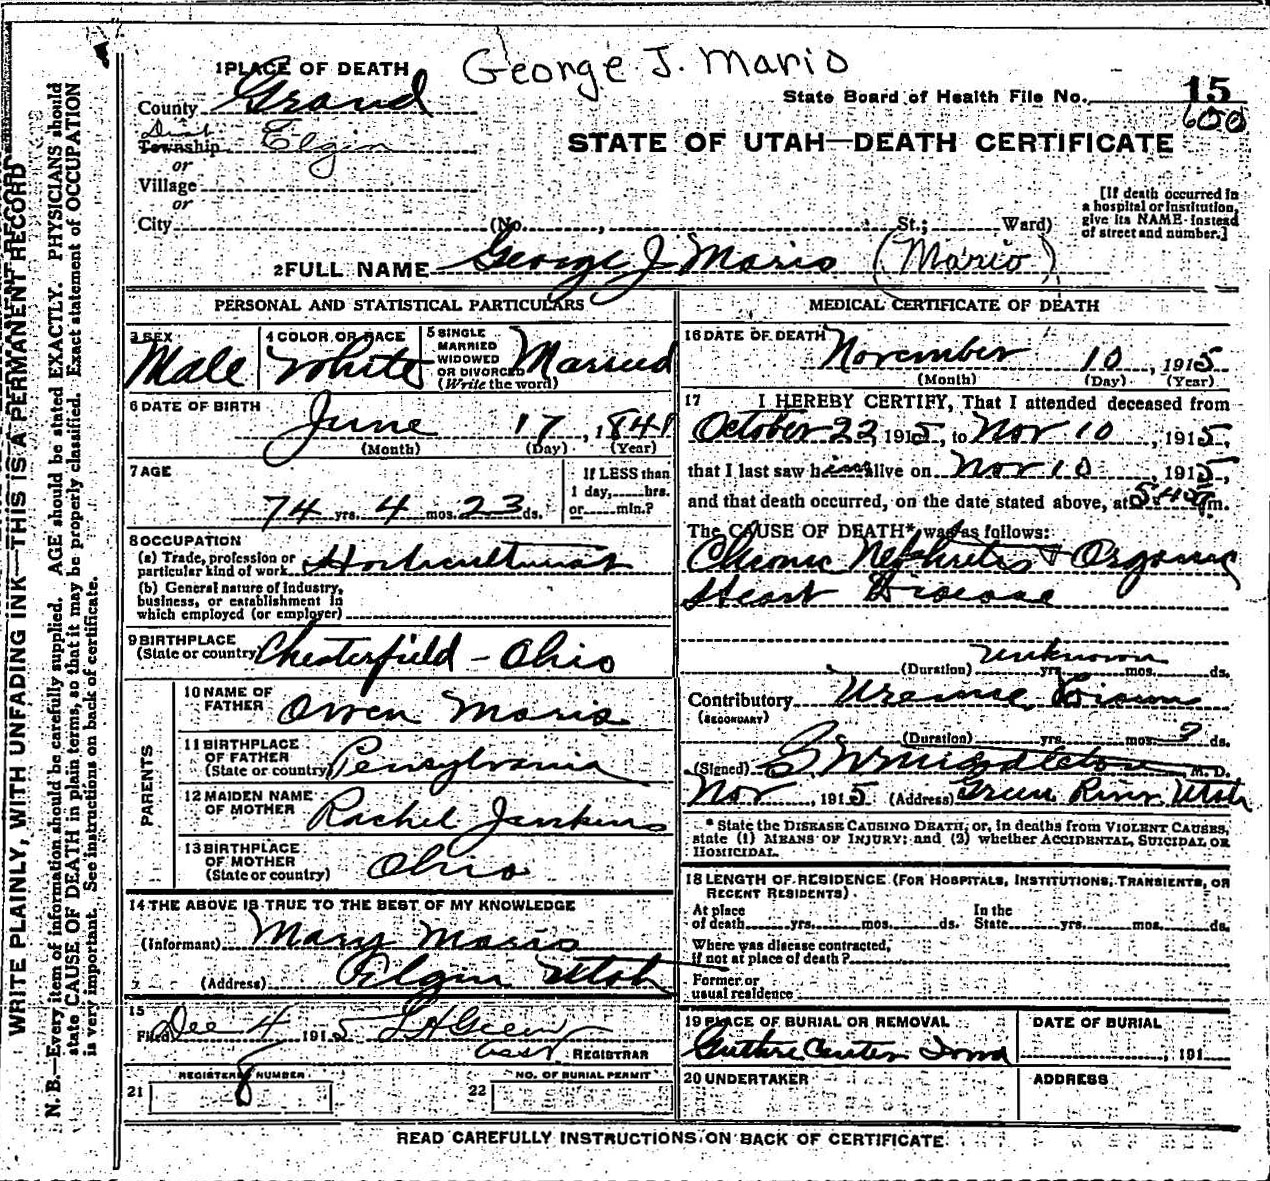 George J. Mario
1 PLACE OF DEATH
County Grand
State Board of Health File No. 15
600
Dist
Township Elgin
STATE OF UTAH—DEATH CERTIFICATE
or
Village
or
City (No. , St.; Ward)
[If death occurred in a hospital or institution, give its NAME instead of street and number.]
2 FULL NAME George J Maris (Mario)
PERSONAL AND STATISTICAL PARTICULARS
3 SEX Male
4 COLOR OR RACE White
5 SINGLE MARRIED WIDOWED OR DIVORCED (Write the word) Married
6 DATE OF BIRTH
June 17, 1841
(Month) (Day) (Year)
7 AGE
74 yrs. 4 mos. 23 ds.
If LESS than 1 day, hrs. or min.?
8 OCCUPATION
(a) Trade, profession or particular kind of work Horticulturist
(b) General nature of industry, business, or establishment in which employed (or employer)
9 BIRTHPLACE (State or country) Chesterfield - Ohio
PARENTS
10 NAME OF FATHER Owen Maris
11 BIRTHPLACE OF FATHER (State or country) Pensylvania
12 MAIDEN NAME OF MOTHER Rachel Jenkins
13 BIRTHPLACE OF MOTHER (State or country) Ohio
14 THE ABOVE IS TRUE TO THE BEST OF MY KNOWLEDGE
(Informant) Mary Maris
(Address) Elgin Utah
15
Filed Dec 4 1915
Asst. REGISTRAR
REGISTERED NUMBER
21 8
NO. OF BURIAL PERMIT
22
MEDICAL CERTIFICATE OF DEATH
16 DATE OF DEATH
November 10, 1915
(Month) (Day) (Year)
17 I HEREBY CERTIFY, That I attended deceased from
October 22, 1915, to Nov 10, 1915,
that I last saw him alive on Nov 10, 1915,
and that death occurred, on the date stated above, at m.
The CAUSE OF DEATH* was as follows:
Chronic Nephritis & Organic
Heart Disease
(Duration) unknown yrs. mos. ds.
Contributory Uremic Poison
(SECONDARY)
(Duration) yrs. mos. ds.
(Signed) M. D.
Nov, 1915 (Address) Green River Utah
* State the DISEASE CAUSING DEATH; or, in deaths from VIOLENT CAUSES,
state (1) MEANS OF INJURY; and (2) whether ACCIDENTAL, SUICIDAL OR
HOMICIDAL.
18 LENGTH OF RESIDENCE (FOR HOSPITALS, INSTITUTIONS, TRANSIENTS, OR
RECENT RESIDENTS).
At place of death yrs. mos. ds. In the State yrs. mos. ds.
Where was disease contracted,
if not at place of death?
Former or
usual residence
19 PLACE OF BURIAL OR REMOVAL
Guthrie Center Iowa
DATE OF BURIAL
, 191
20 UNDERTAKER
ADDRESS
READ CAREFULLY INSTRUCTIONS ON BACK OF CERTIFICATE
WRITE PLAINLY, WITH UNFADING INK—THIS IS A PERMANENT RECORD
N. B.—Every item of information should be carefully supplied. AGE should be stated EXACTLY. PHYSICIANS should
state CAUSE OF DEATH in plain terms, so that it may be properly classified. Exact statement of OCCUPATION
is very important. See instructions on back of certificate.